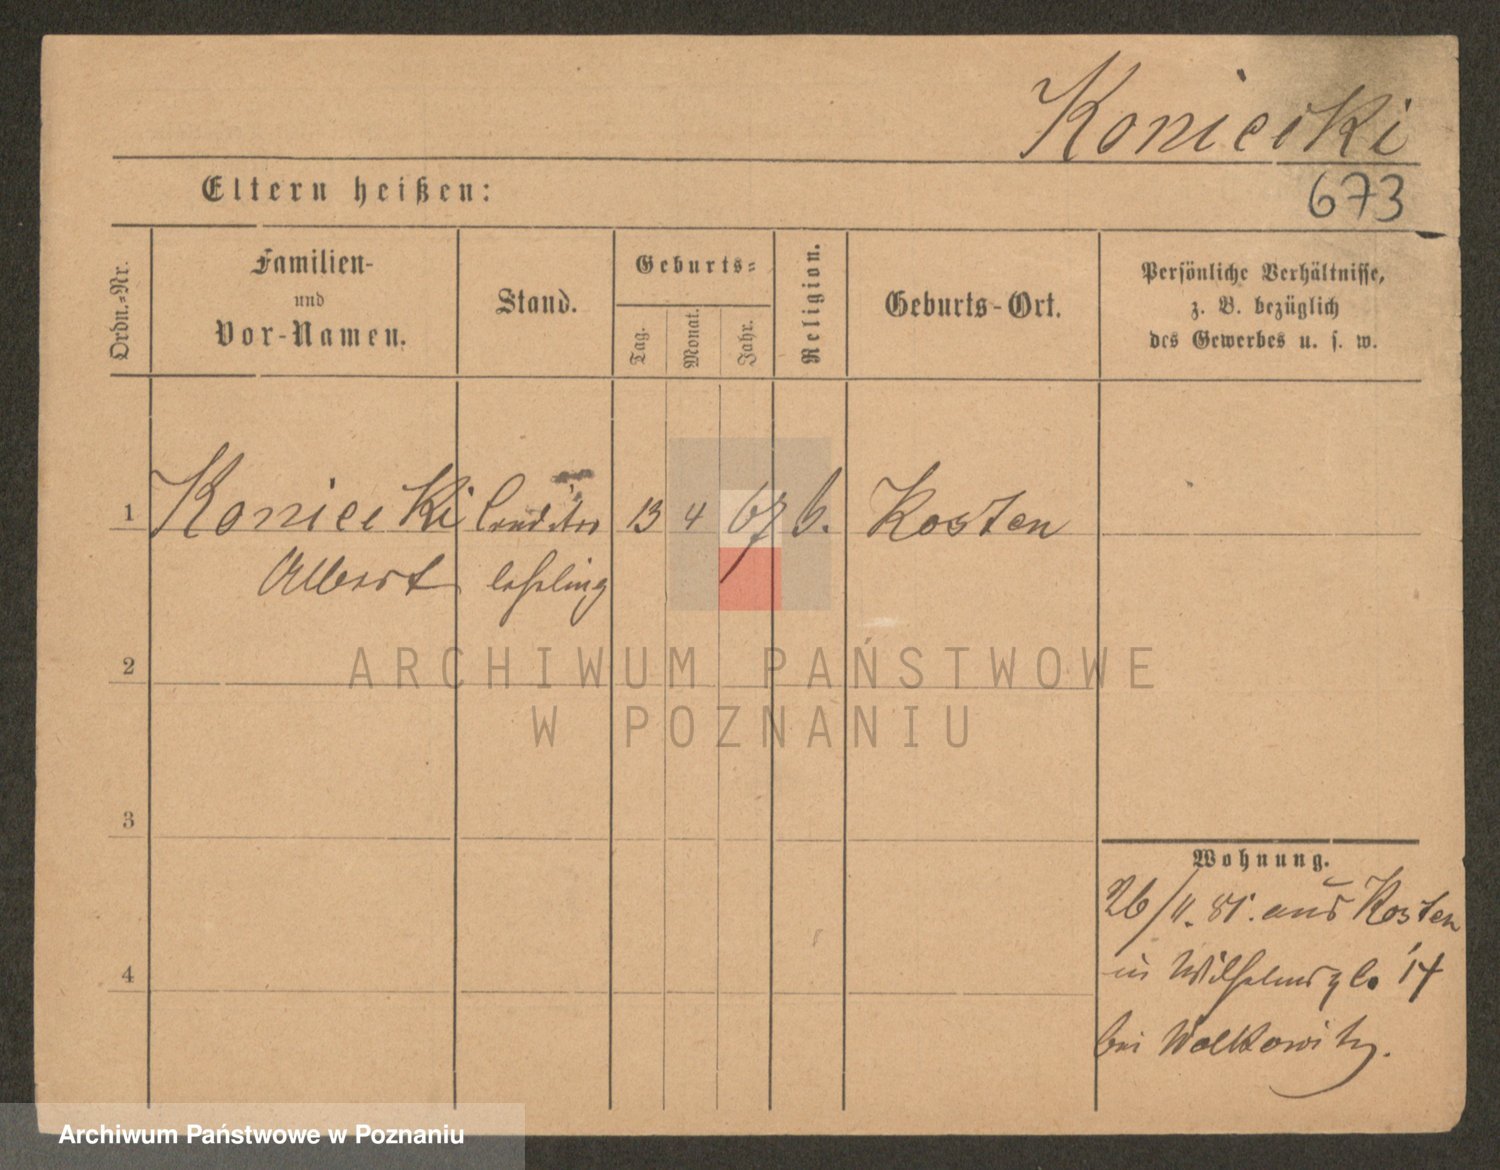 Koniecki
Eltern heißen:
673
Ordn.-Nr.
Familien-
und
Vor-Namen.
Stand.
Geburts-
Tag.
Monat.
Jahr.
Religion.
Geburts-Ort.
Persönliche Verhältnisse,
z. B. bezüglich
des Gewerbes u. s. w.
1 Koniecki Conditor 13 4 67 k. Kosten
Albert lehrling
2
ARCHIWUM PAŃSTWOWE
W POZNANIU
3
Wohnung.
26/11. 85. aus Kosten
in Wilhelmspl. 14
bei Wolkowitz.
4
Archiwum Państwowe w Poznaniu